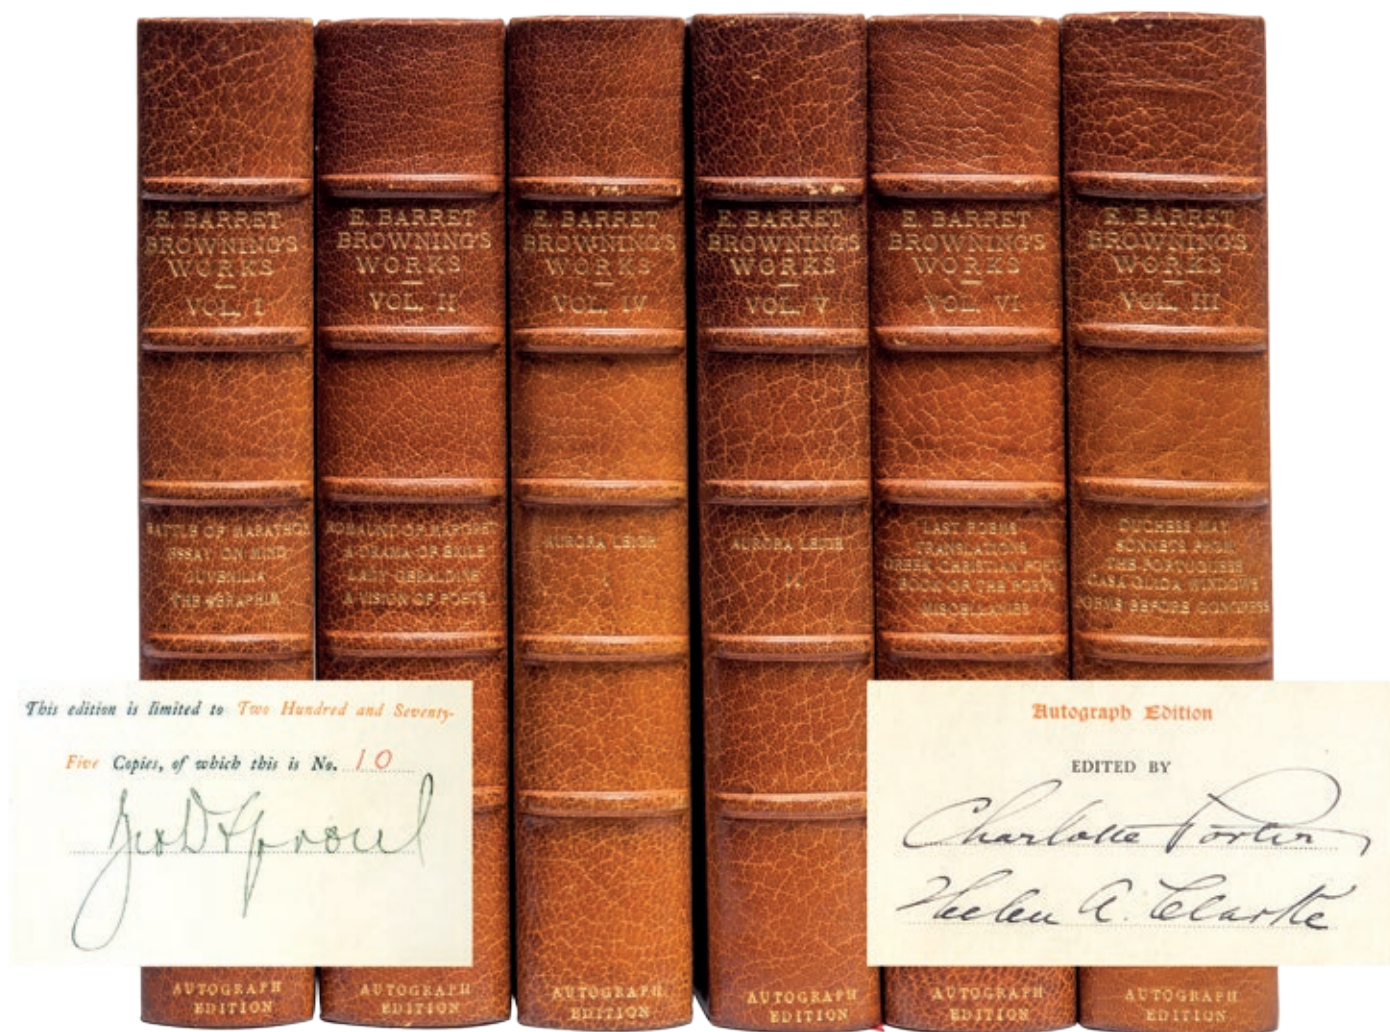 E. BARRET
BROWNING'S
WORKS
VOL. I
BATTLE OF MARATHON
ESSAY ON MIND
JUVENILIA
THE SERAPHIM
AUTOGRAPH
EDITION
E. BARRET
BROWNING'S
WORKS
VOL. II
ROMAUNT OF MARGRET
A DRAMA OF EXILE
LADY GERALDINE
A VISION OF POETS
AUTOGRAPH
EDITION
E. BARRET
BROWNING'S
WORKS
VOL. IV
AURORA LEIGH
I
AUTOGRAPH
EDITION
E. BARRET
BROWNING'S
WORKS
VOL. V
AURORA LEIGH
II
AUTOGRAPH
EDITION
E. BARRET
BROWNING'S
WORKS
VOL. VI
LAST POEMS
TRANSLATIONS
GREEK CHRISTIAN POETS
BOOK OF THE POETS
MISCELLANIES
AUTOGRAPH
EDITION
E. BARRET
BROWNING'S
WORKS
VOL. III
DUCHESS MAY
SONNETS FROM
THE PORTUGUESE
CASA GUIDI WINDOWS
POEMS BEFORE CONGRESS
AUTOGRAPH
EDITION
This edition is limited to Two Hundred and Seventy-
Five Copies, of which this is No. 10
Geo D Sproul
Autograph Edition
EDITED BY
Charlotte Porter
Helen A. Clarke